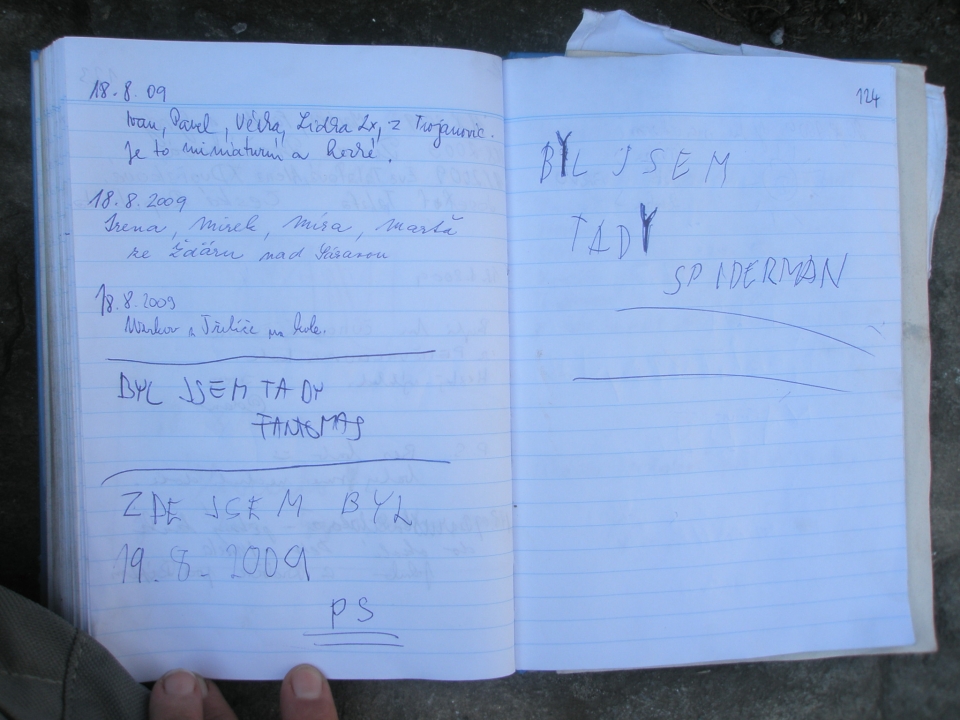 18.8.09
Ivan, Pavel, Věrka, Lidka 2x, z Trojanovic.
Je to miniaturní a hezké.
18.8.2009
Irena, Mirek, Míra, Marta
ze Žďáru nad Sázavou
18.8.2009
na kole.
BYL JSEM TADY
FANTOMAS
ZDE JSEM BYL
19.8.2009
PS
124
BYL JSEM
TADY
SPIDERMAN